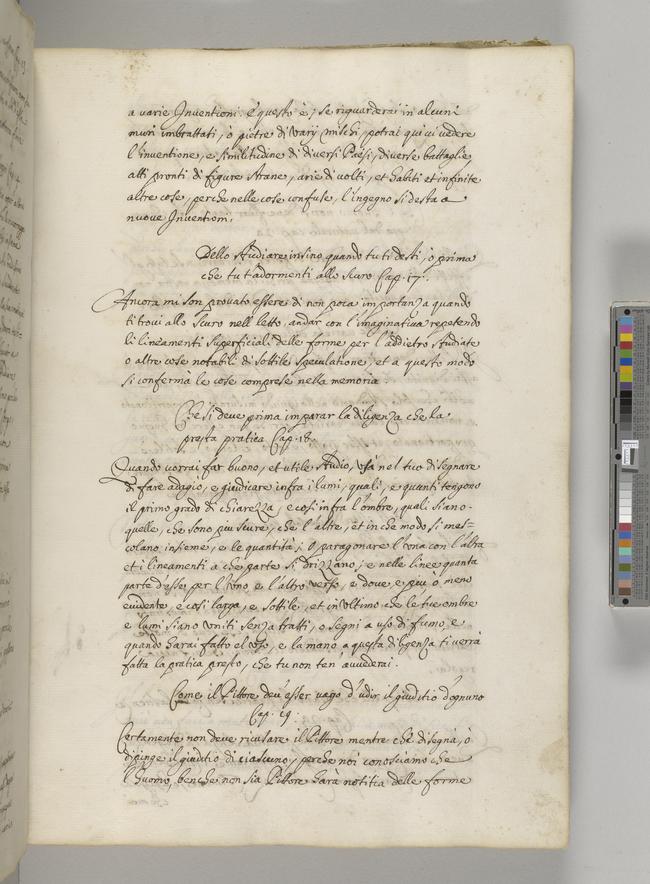 a varie Inventioni. e questo è, se riguarderai in alcuni
muri imbrattati, ò pietre di varij mischi, potrai quivi vedere
l'inventione, e similitudine di diversi Paesi, diverse battaglie,
atti pronti di figure strane, arie di volti, et habiti et infinite
altre cose, perche nelle cose confuse, l'ingegno si desta a
nuove Inventioni.
Dello studiare insino quando tu ti desti, ò prima
che tu t'adormenti allo scuro Cap. 17.
Ancora mi son provato essere di non poca importanza quando
ti trovi allo scuro nell letto, andar con l'imaginativa repetendo
li lineamenti superficiali delle forme per l'addietro studiate
o altre cose notabili di sottile speculatione, et a questo modo
si conferma le cose comprese nella memoria.
Che si deve prima imparar la diligenza che la
presta pratica Cap. 18.
Quando vorrai far buono, et utile studio, usa nel tuo disegnare
di fare adagio, e giudicare infra i lumi, quali, e quanti tengono
il primo grado di chiarezza, e così infra l'ombre, quali siano
quelle, che sono piu scure, che l'altre, et in che modo si mes=
colano insieme, e le quantità; o paragonare l'una con l'altra
et i lineamenti a che parte si drizzano; e nelle linee quanta
parte d'esse per l'uno, e l'altro verso, e dove e piu o meno
evidente, e così larga, e sottile, et in ultimo che le tue ombre
e lumi siano uniti senza tratti, o segni a uso di fumo, e
quando harai fatto el uso, e la mano a questa diligenza ti verrà
fatta la pratica presto, che tu non ten' avvederai.
Come il Pittore dev'esser vago d'udir il giuditio d'ognuno
Cap. 19.
Certamente non deve ricusare il Pittore mentre che disegna, ò
dipinge il giuditio di ciascuno, perche noi conosciamo che
l'huomo, benche non sia Pittore harà notitia delle forme